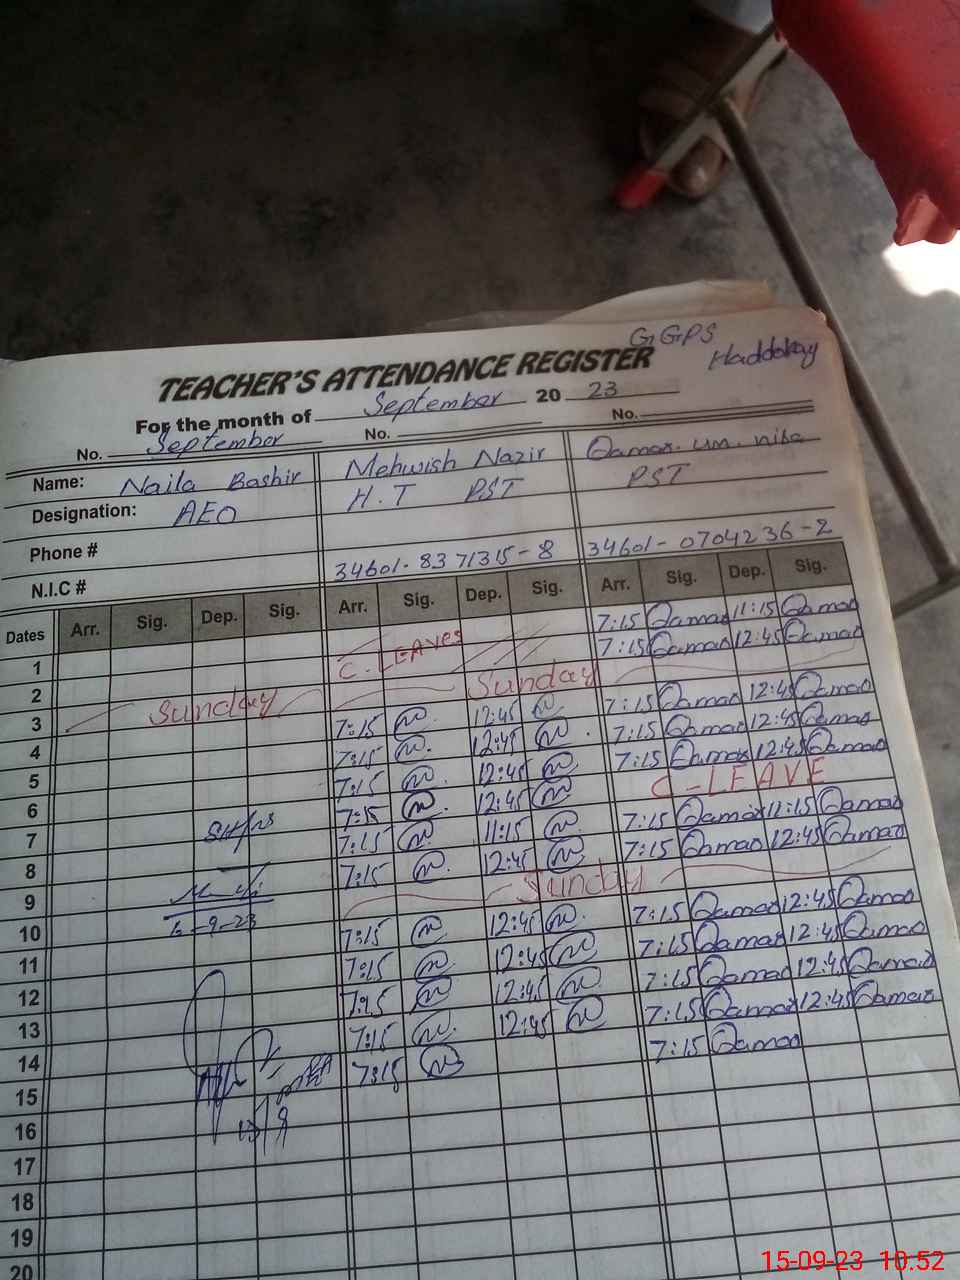 GGPS
Haddokay
TEACHER'S ATTENDANCE REGISTER
For the month of September 20 23
No. September No. No.
Name: Naila Bashir Mehwish Nazir Qamar. un. nisa
Designation: AEO H.T PST PST
Phone #
N.I.C # 34601-8371315-8 34601-0704236-2
Dates Arr. Sig. Dep. Sig. Arr. Sig. Dep. Sig. Arr. Sig. Dep. Sig.
1 C-LEAVES 7:15 Qamar 11:15 Qamar
2 7:15 Qamar 12:45 Qamar
3 Sunday Sunday
4 7:15 12:45 7:15 Qamar 12:45 Qamar
5 7:15 12:45 7:15 Qamar 12:45 Qamar
6 7:15 12:45 7:15 Qamar 12:45 Qamar
7 7:15 12:45 C-LEAVE
8 7:15 11:15 7:15 Qamar 11:15 Qamar
9 7:15 12:45 7:15 Qamar 12:45 Qamar
6-9-23
10 Sunday
11 7:15 12:45 7:15 Qamar 12:45 Qamar
12 7:15 12:45 7:15 Qamar 12:45 Qamar
13 7:15 12:45 7:15 Qamar 12:45 Qamar
14 7:15 12:45 7:15 Qamar 12:45 Qamar
15 7:15 7:15 Qamar
16
17
18
19
20
15-09-23 10.52